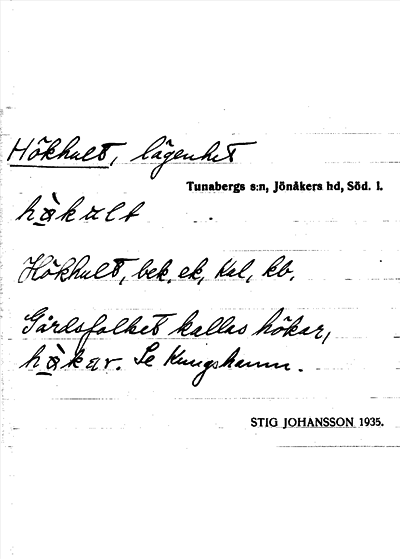 Hökhult, lägenhet
Tunabergs s:n, Jönåkers hd, Söd. l.
hø̀kult
Hökhult, bek. ek, Kal, kb.
Gårdsfolket kallas hökar,
hø̀kar. Se Kungshamn.
STIG JOHANSSON 1935.